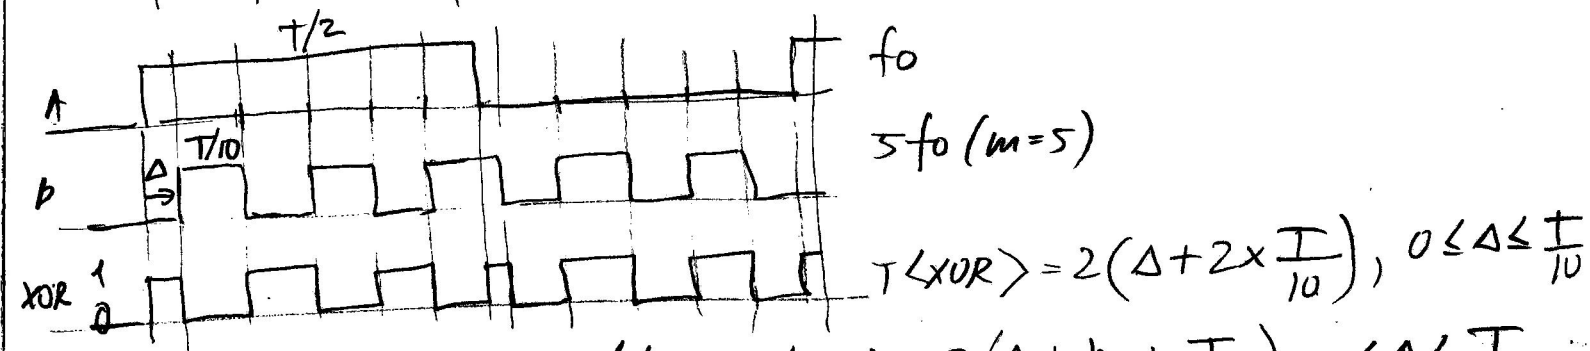 T/2
A
f0
T/10
Δ
5f0 (m=5)
b
XOR 1
0
T<XOR> = 2(Δ+2×T/10), 0≤Δ≤T/10